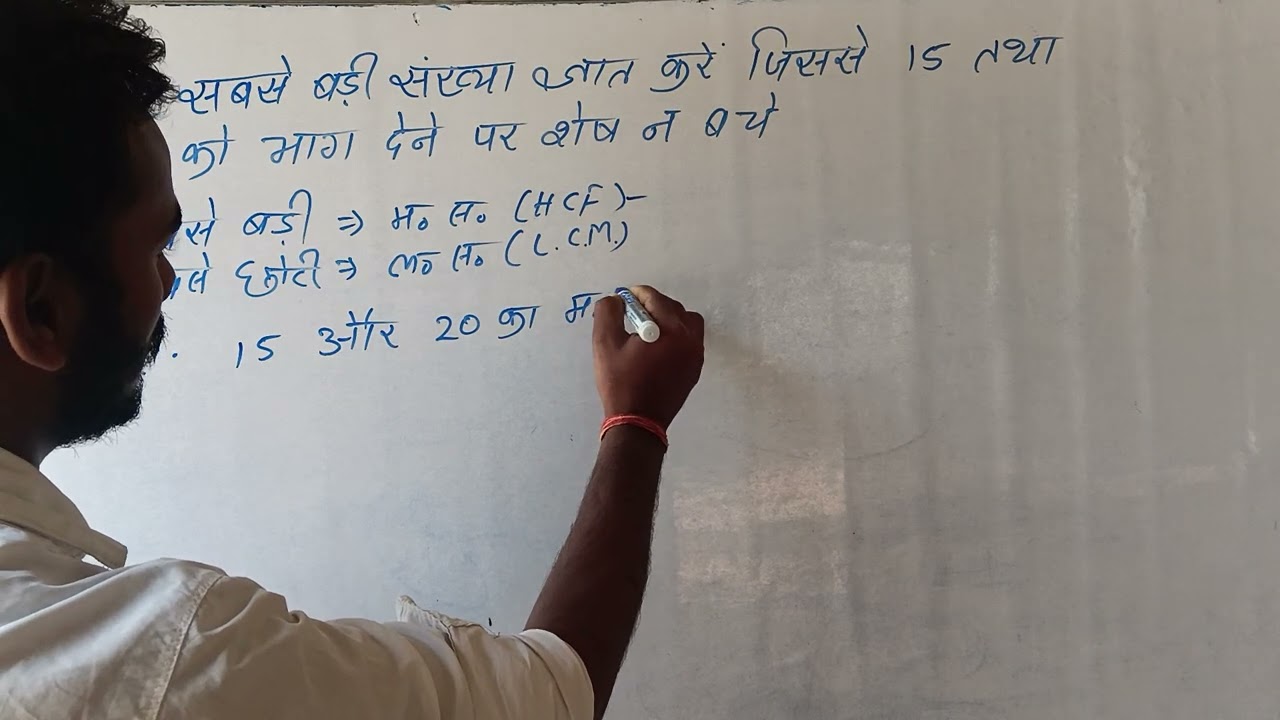 सबसे बड़ी संख्या ज्ञात करें जिससे 15 तथा
को भाग देने पर शेष न बचे
से बड़ी ⇒ म॰ स॰ (HCF)-
से छोटी ⇒ ल॰ स॰ (L.C.M.)
15 और 20 का म॰